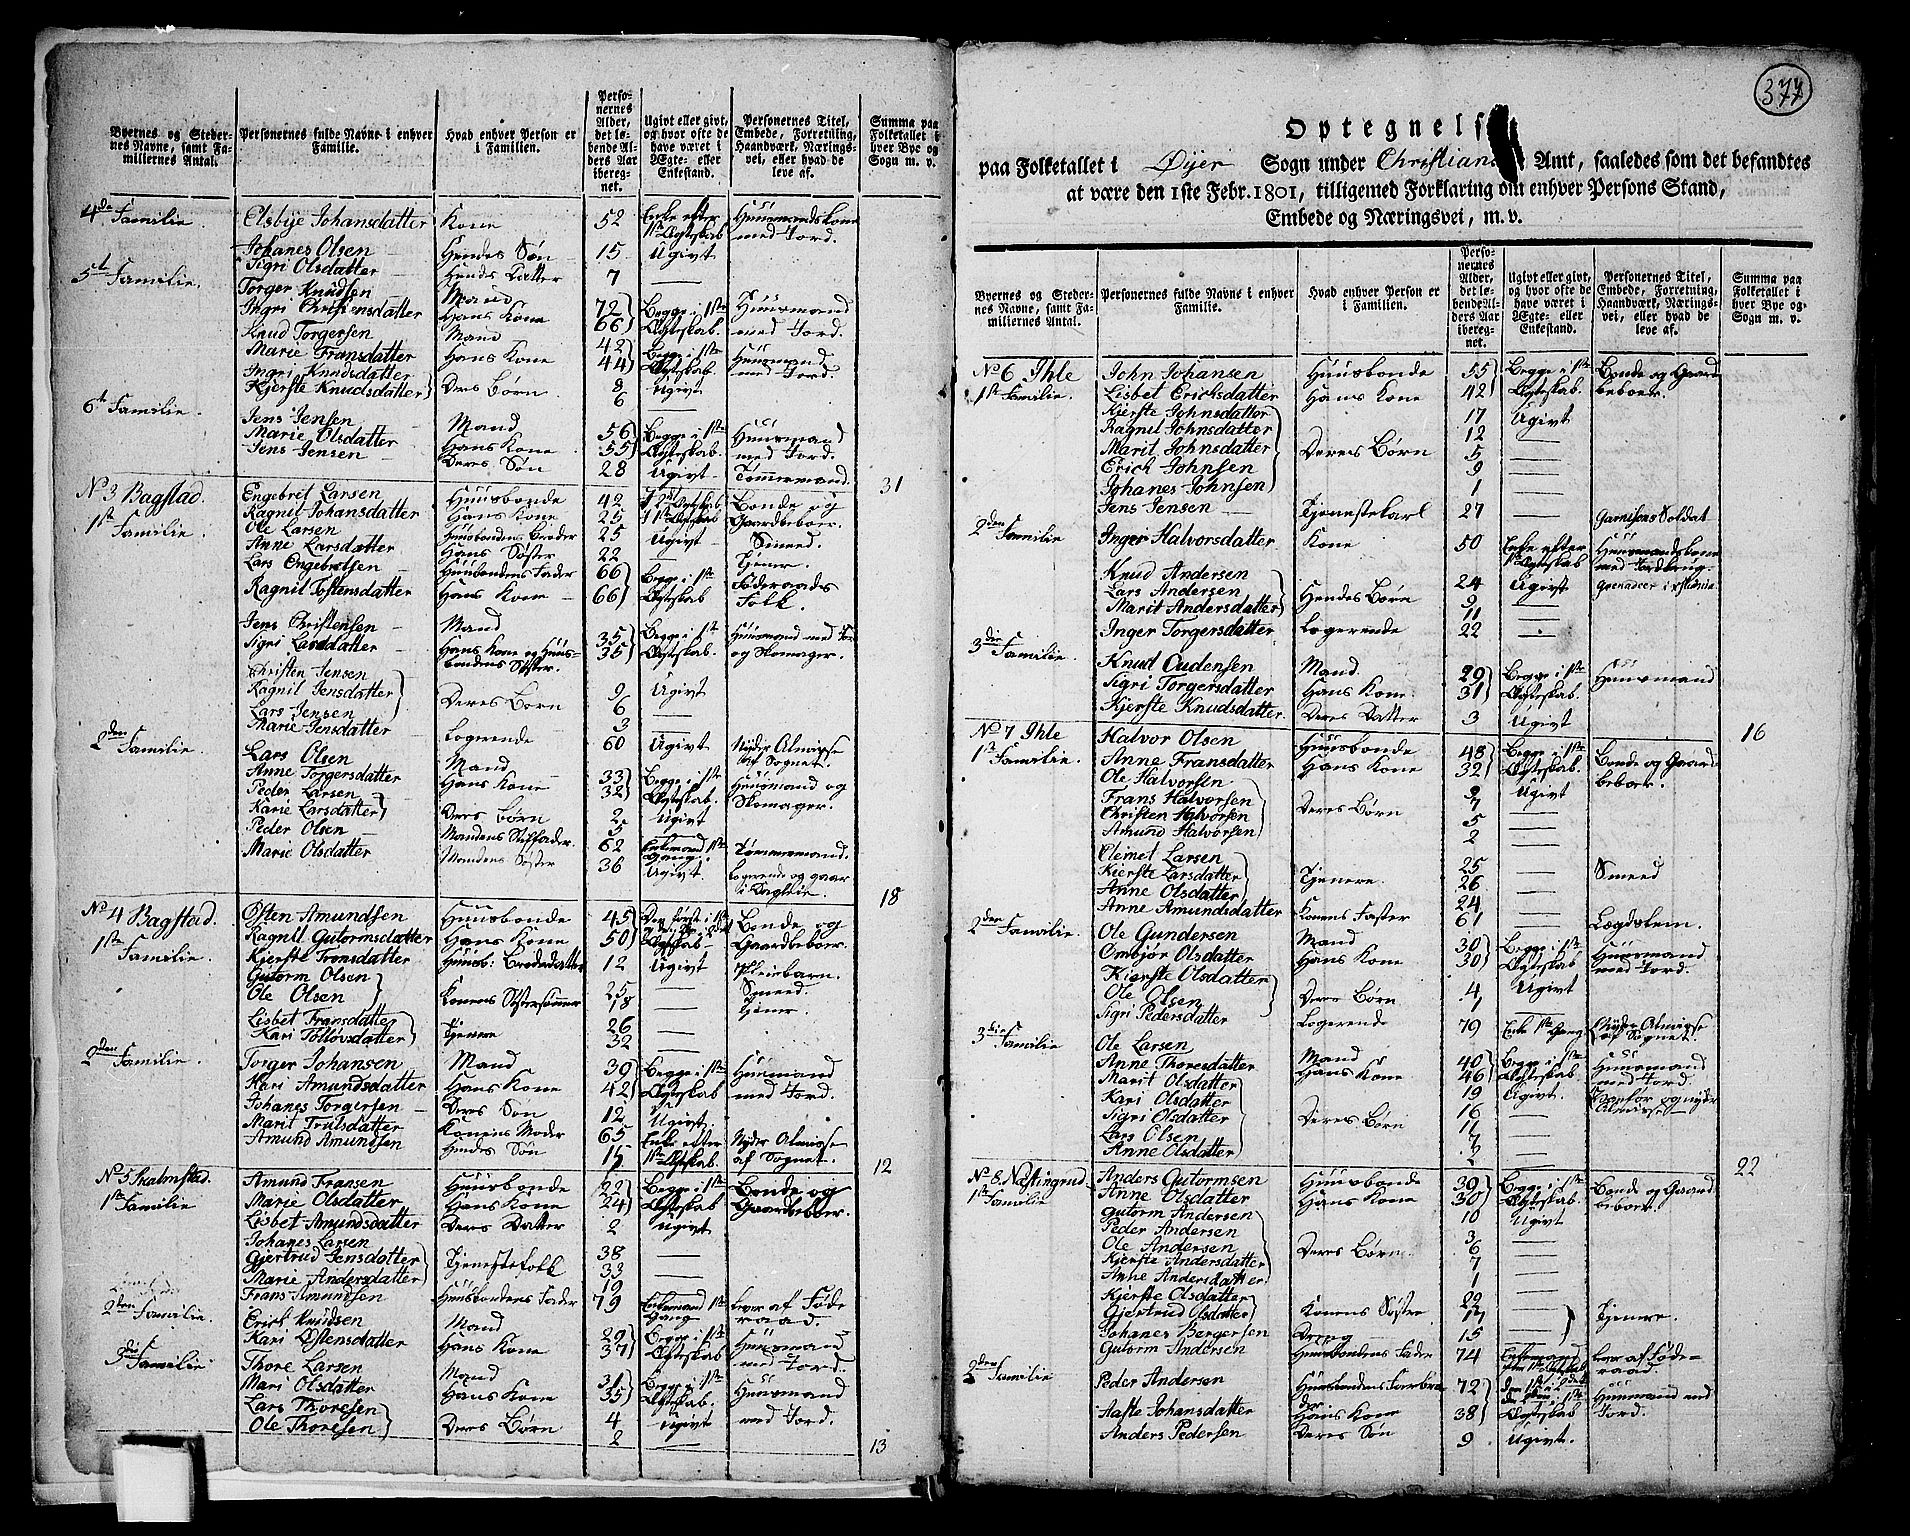 Byernes og Steder-
nes Navne, samt Fa-
miliernes Antal.
Personernes fulde Navne i enhver
Familie.
Hvad enhver Person er
i Familien.
Perso-
nernes
Alder,
det le-
bende Al-
ders Aar
iberegnet.
Ugivt eller givt,
og hvor ofte de
have været i
Ægte- eller
Enkestand.
Personernes Titel,
Embede, Forretning,
Haandværk, Nærings-
vei, eller hvad de
leve af.
Summa paa
Folketallet i
hver Bye og
Sogn m. v.
4de Familie Elsbye Johansdatter Kone 52 Enke efter 1ste Ægteskab Huusmandskone med Jord.
Johanes Olsen Hendes Søn 15 Ugivt
Sigri Olsdatter Hendes Datter 7 —
5te Familie. Torger Knudsen Mand 72 Begge i 1ste Ægteskab. Huusmand med Jord.
Ingri Christensdatter Hans Kone 66
Knud Torgersen Mand 42 Begge i 1ste Ægteskab. Huusmand med Jord.
Marie Fransdatter Hans Kone 44
Ingri Knudsdatter Deres Børn 8 Ugivt
Kjerste Knudsdatter 6 —
6te Familie. Jens Jensen Mand 56 Begge i 1ste Ægteskab. Huusmand med Jord.
Marie Olsdatter Hans Kone 55
Jens Jensen Deres Søn 28 Ugivt Tømmermand. 31
No 3 Bagstad.
1ste Familie. Engebret Larsen Huusbonde 42 Bonde og Gaardbeboer.
Ragnil Johansdatter Hans Kone 25
Ole Larsen Huusbondens Broder 25 Ugivt Smeed.
Anne Larsdatter Hans Søster 22 — Tjener.
Lars Engebretsen Huusbondens Fader 66 Begge i 1ste Ægteskab Føderaads Folk.
Ragnil Tostensdatter Hans Kone 66
Jens Christensen Mand 35 Begge i 1ste Ægteskab. Huusmand med Jord og Skomager.
Sigri Larsdatter Hans Kone og Huusbondens Søster. 35
Christen Jensen 9 Ugivt
Ragnil Jensdatter Deres Børn 6 —
Lars Jensen 3 —
Marie Jensdatter Logerende 60 Ugivt Nyder Almisse af Sognet.
2den Familie. Lars Olsen Mand 33 Begge i 1ste Ægteskab. Huusmand og Skomager.
Anne Torgersdatter Hans Kone 32
Peder Larsen Deres børn 2 Ugivt
Karie Larsdatter 5 —
Peder Olsen Mandens Stiffader. 62 Enkemand 1ste Gang. Tømmermand.
Marie Olsdatter Mandens Søster 36 Ugivt Logerende og gaar i Dagleie. 18
No 4 Bagstad.
1ste Familie. Østen Amundsen Huusbonde 45 Bonde og Gaardbeboer.
Ragnil Gutormsdatter Hans Kone 50
Kjerste Tronsdatter Huusb: Broderdatter 12 Ugivt Pleiebarn.
Gutorm Olsen Konens Søstersønner 25 — Smeed.
Ole Olsen 18 — Tjener.
Lisbet Fransdatter Tjenere 26 —
Kari Tollovsdatter 32 —
2den Familie. Torger Johansen Mand 39 Begge i 1ste Ægteskab Huusmand med Jord.
Kari Amundsdatter Hans Kone 42
Johanes Torgersen Deres Søn 12 Ugivt.
Marit Trulsdatter Konens Moder 65 Enke efter 1ste Ægteskab. Nyder Almisse af Sognet.
Amund Amundsen Hendes Søn 15 12
No 5 Skalmstad.
1ste Familie Amund Fransen Huusbonde 22 Begge i 1ste Ægteskab Bonde og Gaardbeboer.
Marie Olsdatter Hans Kone 24
Lisbet Amundsdatter Deres Datter 2 Ugivt
Johanes Larsen Tjenestefolk 38 —
Gjertrud Jensdatter 33 —
Marie Andersdatter 19
Frans Amundsen Huusbondens Fader 79 Enkemand 1ste Gang Lever af Føderaad.
2den Familie. Erick Knudsen Mand 29 Begge i 1ste Ægteskab Huusmand med Jord.
Kari Østensdatter Hans Kone 37
3die Familie Thore Larsen Mand 31 Begge i 1ste Ægteskab Huusmand med Jord.
Mari Olsdatter Hans Kone 35
Lars Thoresen Deres Børn 4 Ugivt
Ole Thoresen 2 — 13
377
Optegnelse
paa Folketallet i Øyer Sogn under Christians Amt, saaledes som det befandtes
at være den 1ste Febr. 1801, tilligemed Forklaring om enhver Persons Stand,
Embede og Næringsvei, m. v.
Byernes og Steder-
nes Navne, samt Fa-
miliernes Antal.
Personernes fulde Navne i enhver
Familie.
Hvad enhver Person er
i Familien.
Perso-
nernes
Alder,
det le-
bende Al-
ders Aar
ibereg-
net.
Ugivt eller givt,
og hvor ofte de
have været i
Ægte- eller
Enkestand.
Personernes Titel,
Embede, Forretning,
Haandværk, Nærings-
vei, eller hvad de
leve af.
Summa paa
Folketallet i
hver Bye og
Sogn m. v.
No 6 Ihle
1ste Familie. John Johansen Huusbonde 55 Begge i 1ste Ægteskab. Bonde og Gaardbeboer.
Lisbet Ericksdatter Hans Kone 42
Kjerste Johnsdatter 17 Ugivt
Ragnil Johnsdatter 12 —
Marit Johnsdatter Deres Børn 5 —
Erich Johnsen 9 —
Johanes Johnsen 1 —
Jens Jensen Tjenestekarl 27 — Garnisons Soldat
2den Familie Inger Halvorsdatter Kone 50 Enke efter 1ste Ægteskab Huusmandskone med Jordbrug.
Knud Andersen 24 Ugivt Grenadeer i
Lars Andersen Hendes Børn 9 —
Marit Andersdatter 11 —
Inger Torgersdatter Logerende 22 —
3die Familie. Knud Oudensen Mand 29 Begge i 1ste Ægteskab. Huusmand
Sigri Torgersdatter Hans Kone 31
Kjerste Knudsdatter Deres Datter 3 Ugivt 16
No 7 Ihle
1ste Familie. Halvor Olsen Huusbonde 48 Begge i 1ste Ægteskab. Bonde og Gaardbeboer.
Anne Fransdatter Hans Kone 32
Ole Halvorsen 9 Ugivt
Frans Halvorsen Deres Børn 7 —
Christen Halvorsen 5 —
Amund Halvorsen 2 —
Clemet Larsen 25 — Smeed
Kjerste Larsdatter Tjenere. 26 —
Anne Olsdatter 24 —
Anne Amundsdatter Konens Faster 61 — Lægdslem.
2den Familie. Ole Gundersen Mand 30 Begge i 1ste Ægteskab. Huusmand med Jord.
Ømbjør Olsdatter Hans Kone 30
Kjerste Olsdatter Deres Børn 4 Ugivt
Ole Olsen 1 —
Sigri Pedersdatter Logerende 79 Enke 1ste Gang Nyder Almisse af Sognet.
3die Familie Ole Larsen Mand 40 Begge i 1ste Ægteskab Huusmand med Jord
Anne Thoresdatter Hans Kone 46
Marit Olsdatter 19 Ugivt.
Kari Olsdatter 16 —
Sigri Olsdatter Deres Børn 11 —
Lars Olsen 7 —
Anne Olsdatter 2 — 22
No 8. Nastingrud
1ste Familie Anders Gutormsen Huusbonde 39 Begge i 1ste Ægteskab. Bonde og Gaardbeboer.
Anne Olsdatter Hans Kone 30
Gutorm Andersen 10 Ugivt
Peder Andersen 3 —
Ole Andersen Deres Børn. 6 —
Kjerste Andersdatter 7 —
Anne Andersdatter 1 —
Kjerste Olsdatter Konens Søstre 22 — Tjenere.
Gjertrud Olsdatter —
Johanes Bergersen Dreng 15 —
Gutorm Andersen Huusbondens Fader 74 Enkemand Lever af Føderaad.
2den Familie Peder Andersen Huusbondens Farbroder 72 Huusmand med Jord.
Aaste Johansdatter Hans Kone 38 Ægteskab
Anders Pedersen Deres Søn 9 Ugivt.